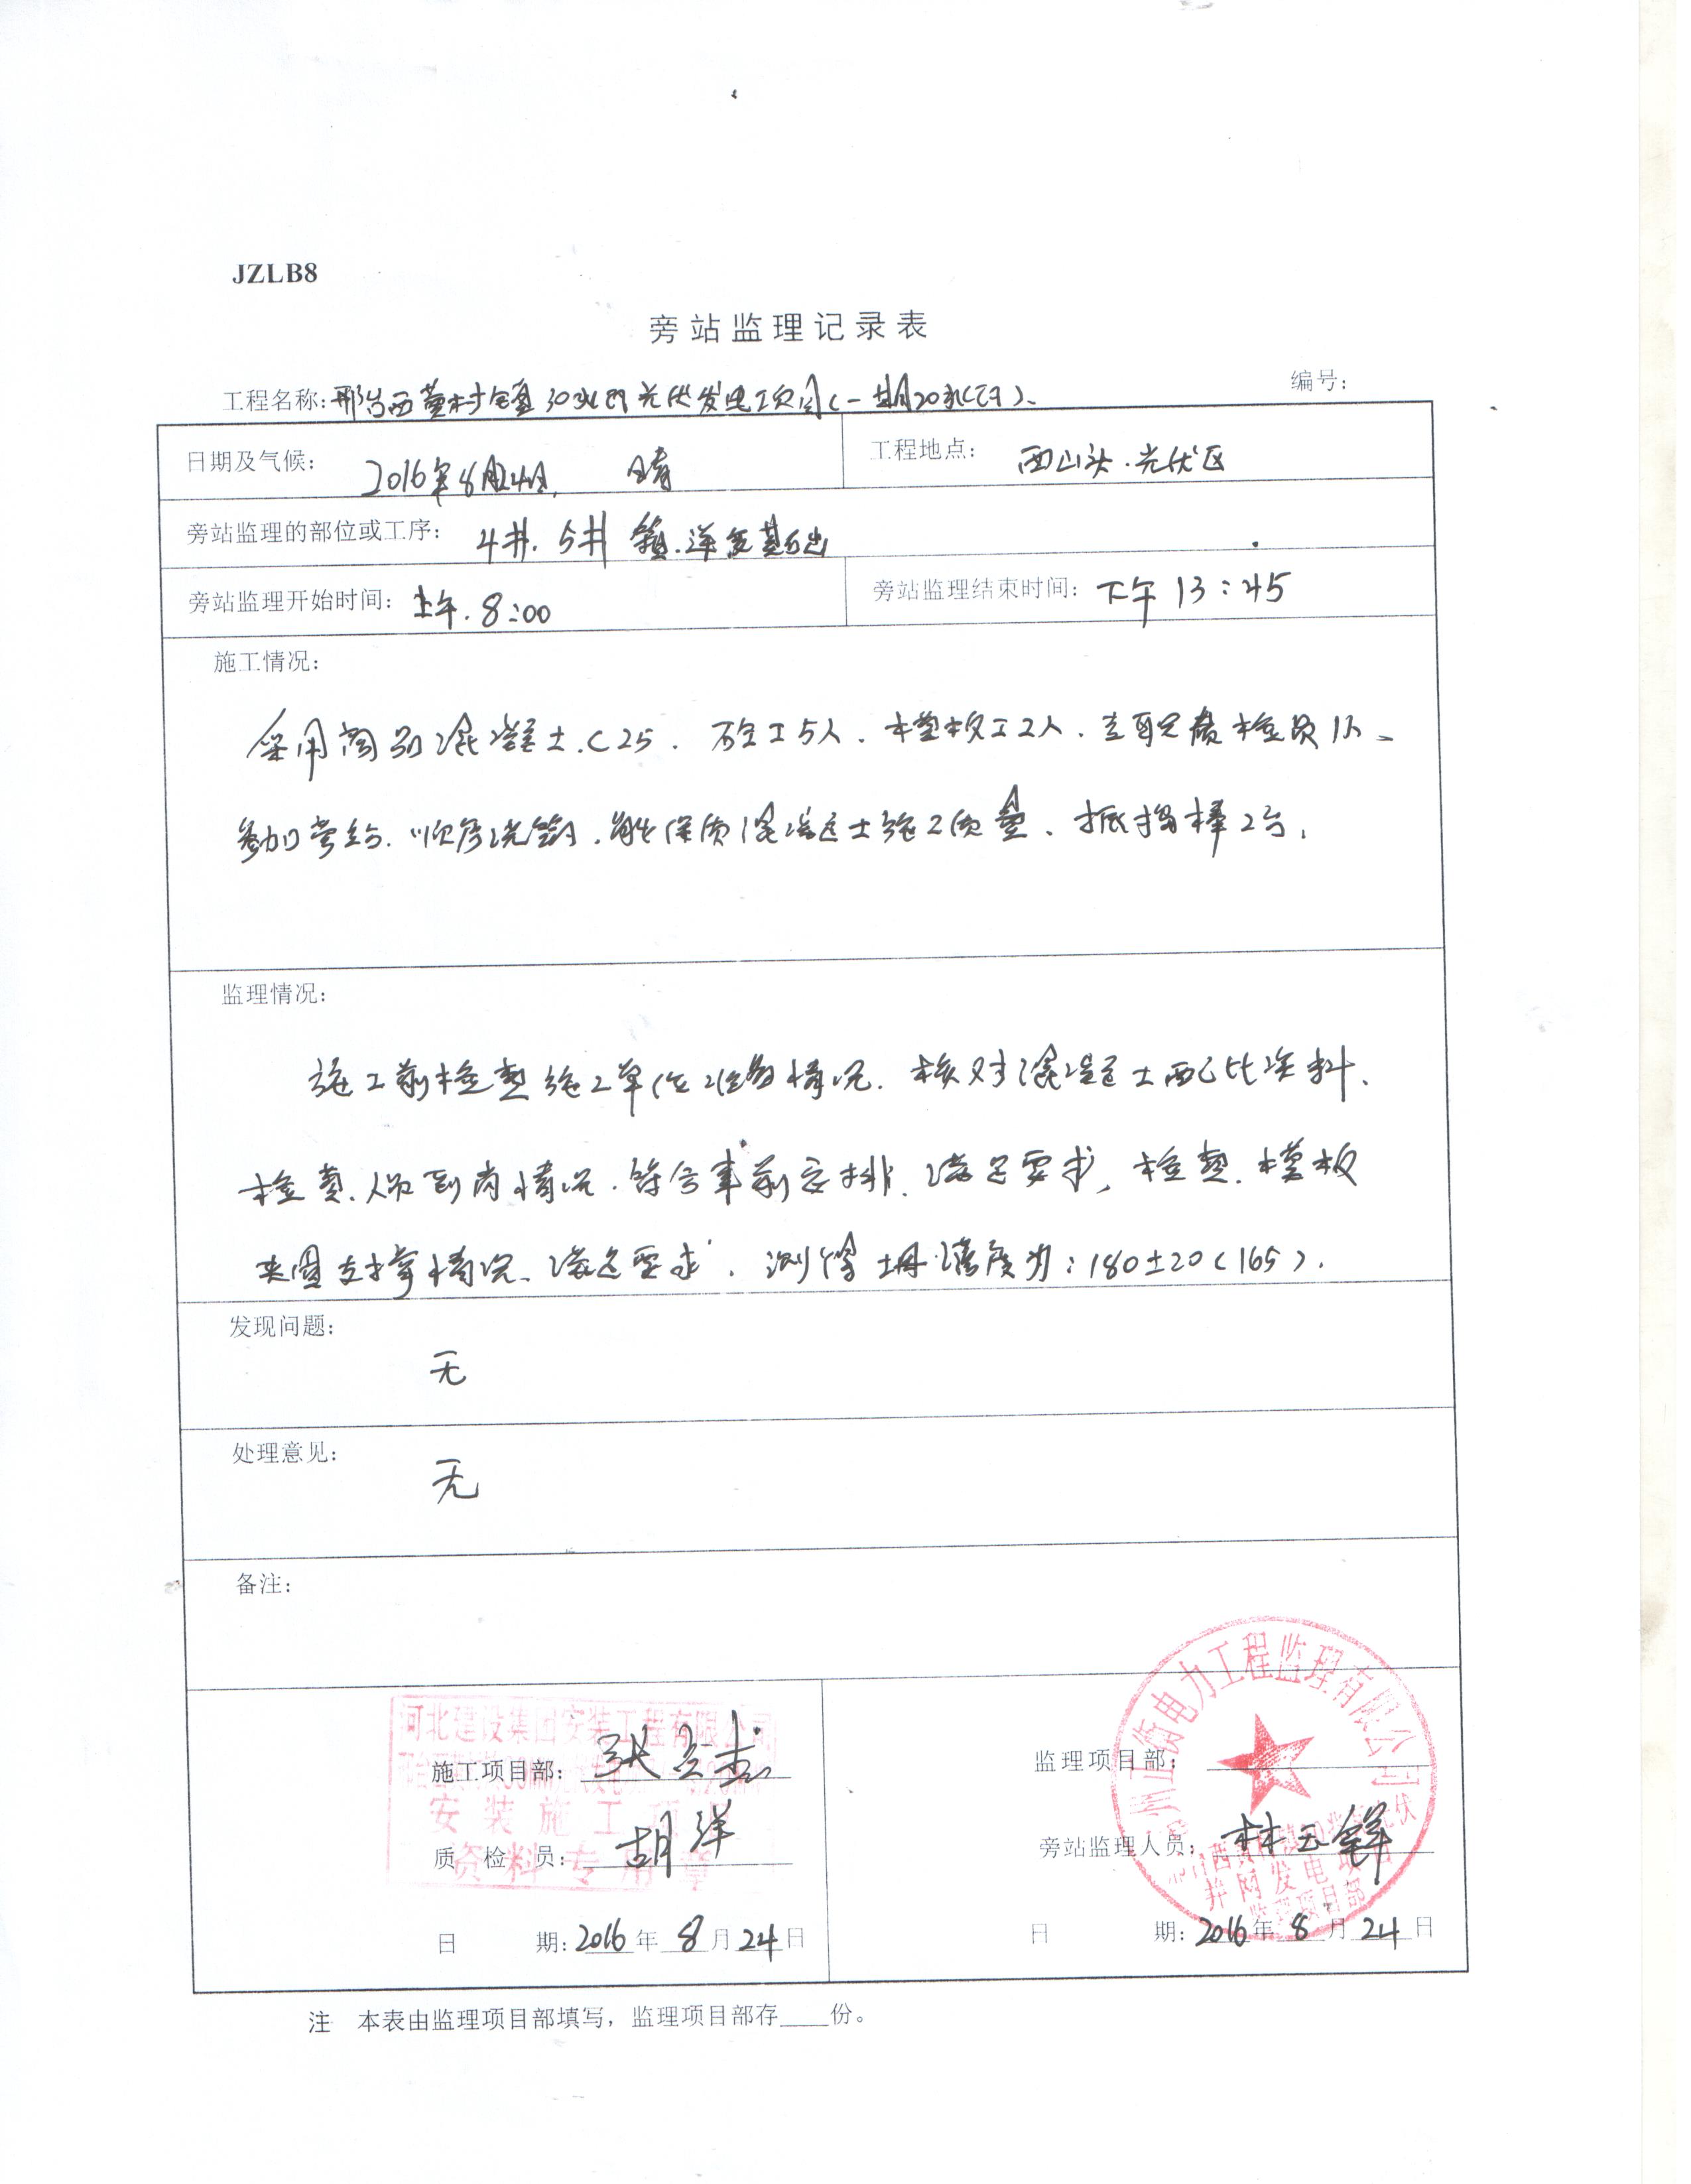 JZLB8
旁站监理记录表
工程名称: 邢台西黄村镇30MW光伏发电项目(一期20MW).
编号:
日期及气候: 2016年8月24日, 晴
工程地点: 西山头.光伏区
旁站监理的部位或工序: 4#. 5# 箱.逆变基础
旁站监理开始时间: 上午.8:00
旁站监理结束时间: 下午13:45
施工情况:
采用商品混凝土.C25. 砼工5人. 模板工2人. 专职质检员1人、
参加旁站. 顺序浇筑. 能保质混凝土施工质量. 振捣棒2台.
监理情况:
施工前检查施工单位准备情况. 核对混凝土配比资料.
检查.人员到岗情况. 符合事前安排. 满足要求, 检查. 模板
夹固支撑情况. 满足要求. 测得坍落度为: 180±20(165).
发现问题:
无
处理意见:
无
备注:
河北建设集团安装工程有限公司
施工项目部:
安装施工
质检员: 胡洋
资料专用章
日期: 2016年8月24日
正衡电力工程监理有限公司
监理项目部:
旁站监理人员: 林玉锋
并网发电
监理项目部
日期: 2016年8月24日
注 本表由监理项目部填写，监理项目部存____份。